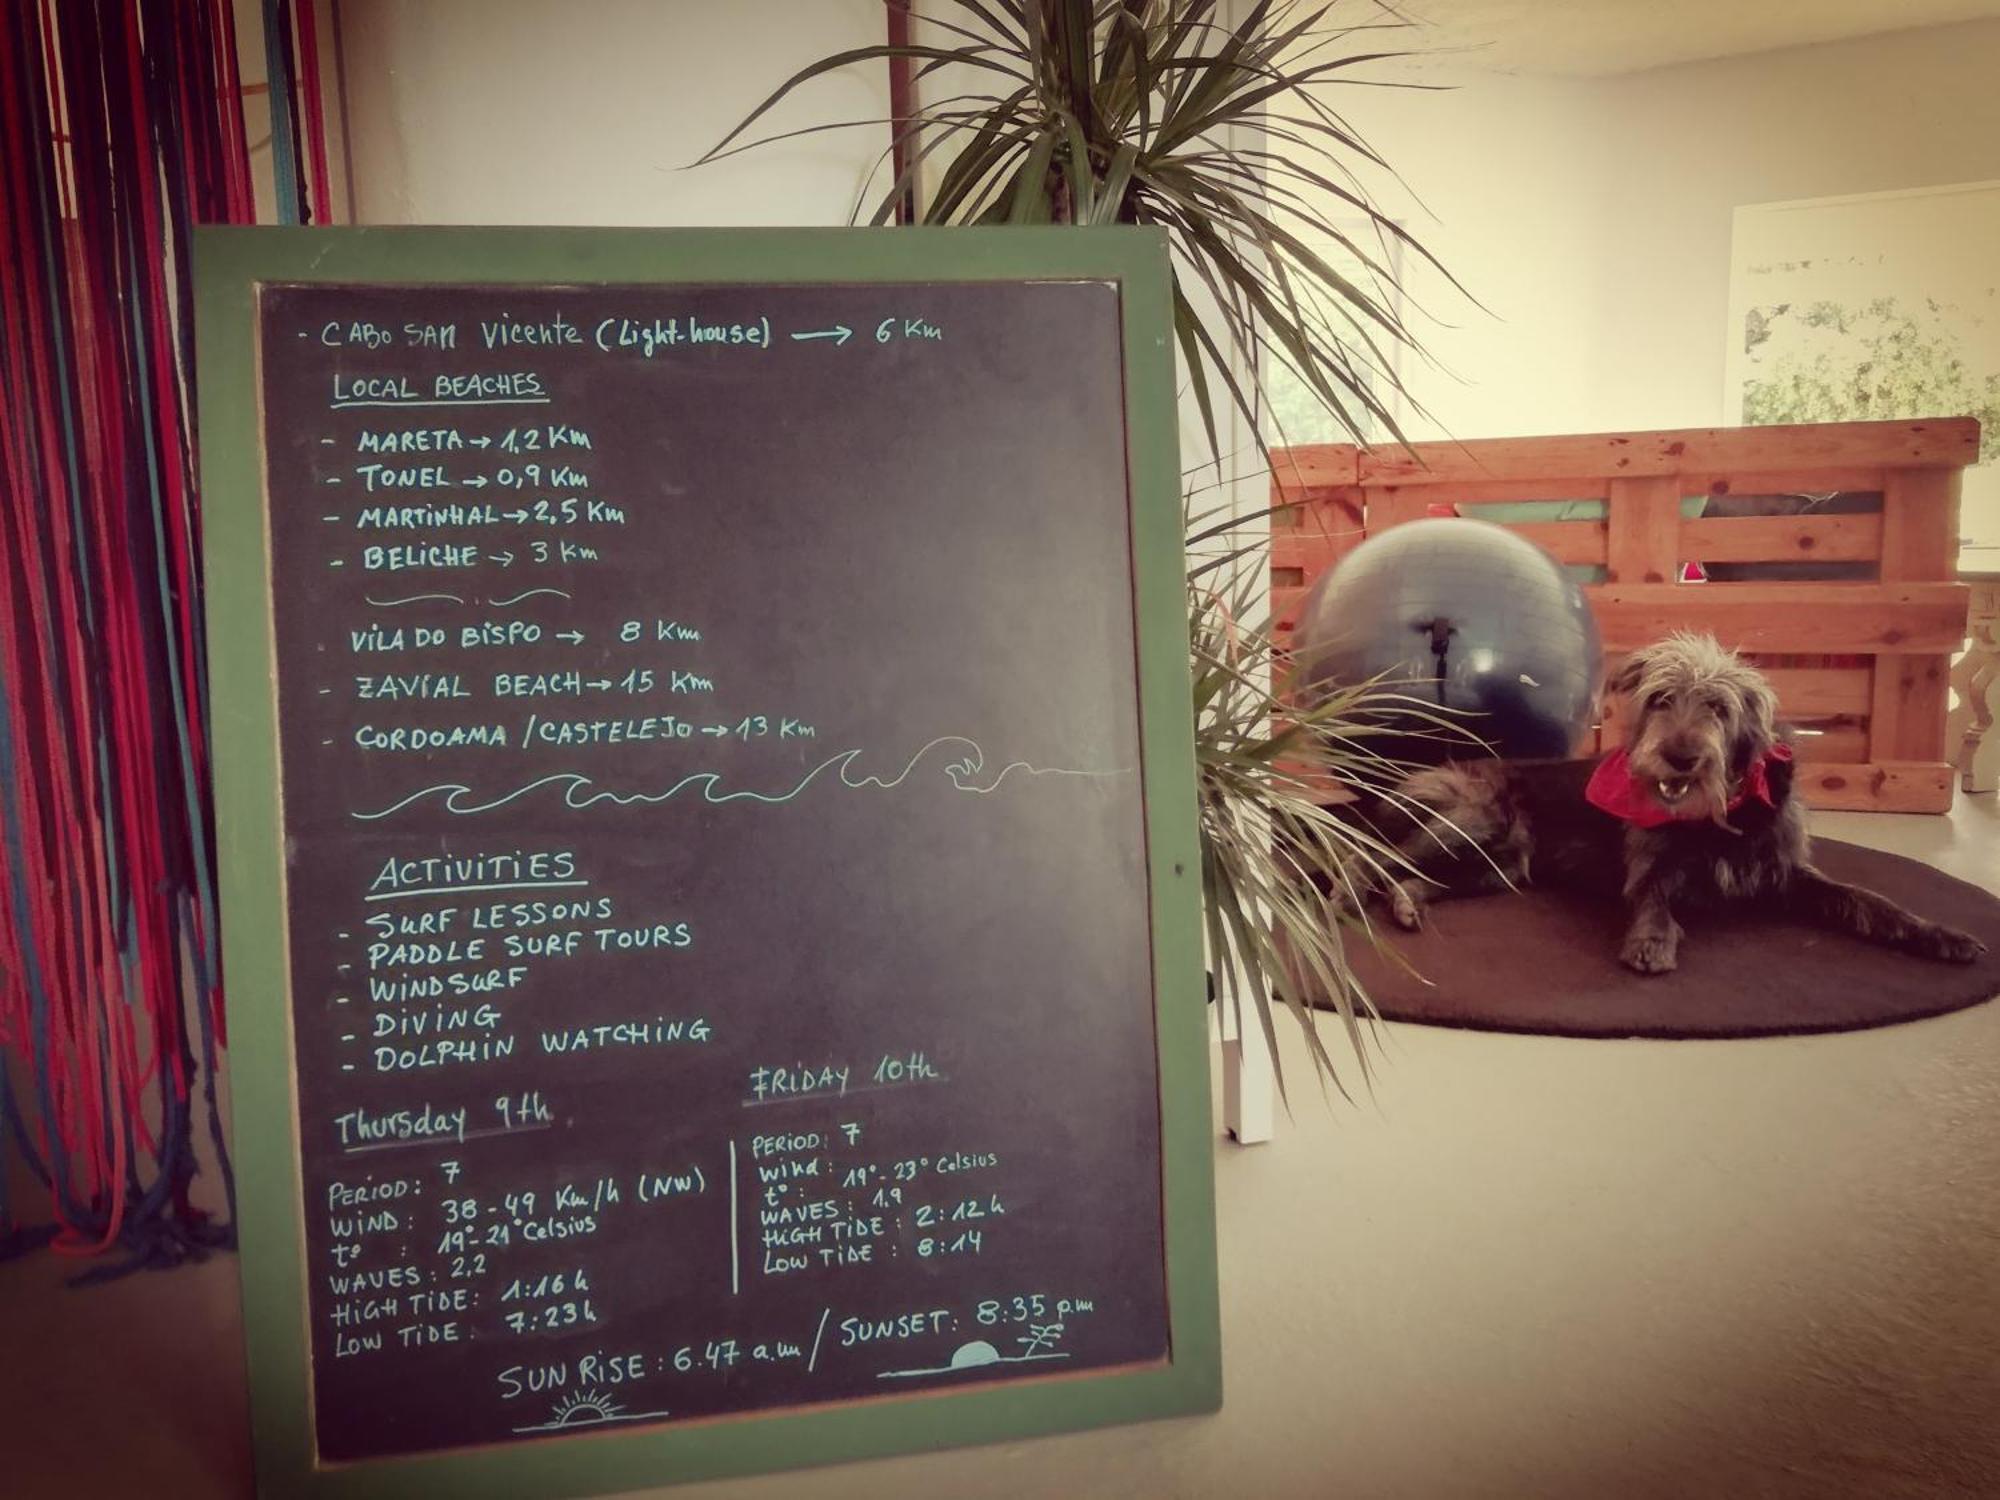 - CABO SAN Vicente (Light-house) → 6 Km
LOCAL BEACHES
- MARETA → 1,2 Km
- TONEL → 0,9 Km
- MARTINHAL → 2,5 Km
- BELICHE → 3 Km
- VILA DO BISPO → 8 Km
- ZAVIAL BEACH → 15 Km
- CORDOAMA / CASTELEJO → 13 Km
ACTIVITIES
- SURF LESSONS
- PADDLE SURF TOURS
- WINDSURF
- DIVING
- DOLPHIN WATCHING
Thursday 9th
PERIOD: 7
WIND: 38-49 Km/h (NW)
tº : 19º-21º Celsius
WAVES: 2,2
HIGH TIDE: 1:16 h
LOW TIDE: 7:23 h
FRIDAY 10th
PERIOD: 7
Wind:
tº: 19º-23º Celsius
WAVES: 1,9
HIGH TIDE: 2:12 h
LOW TIDE: 8:14
SUN RISE: 6.47 a.m / SUNSET: 8:35 p.m